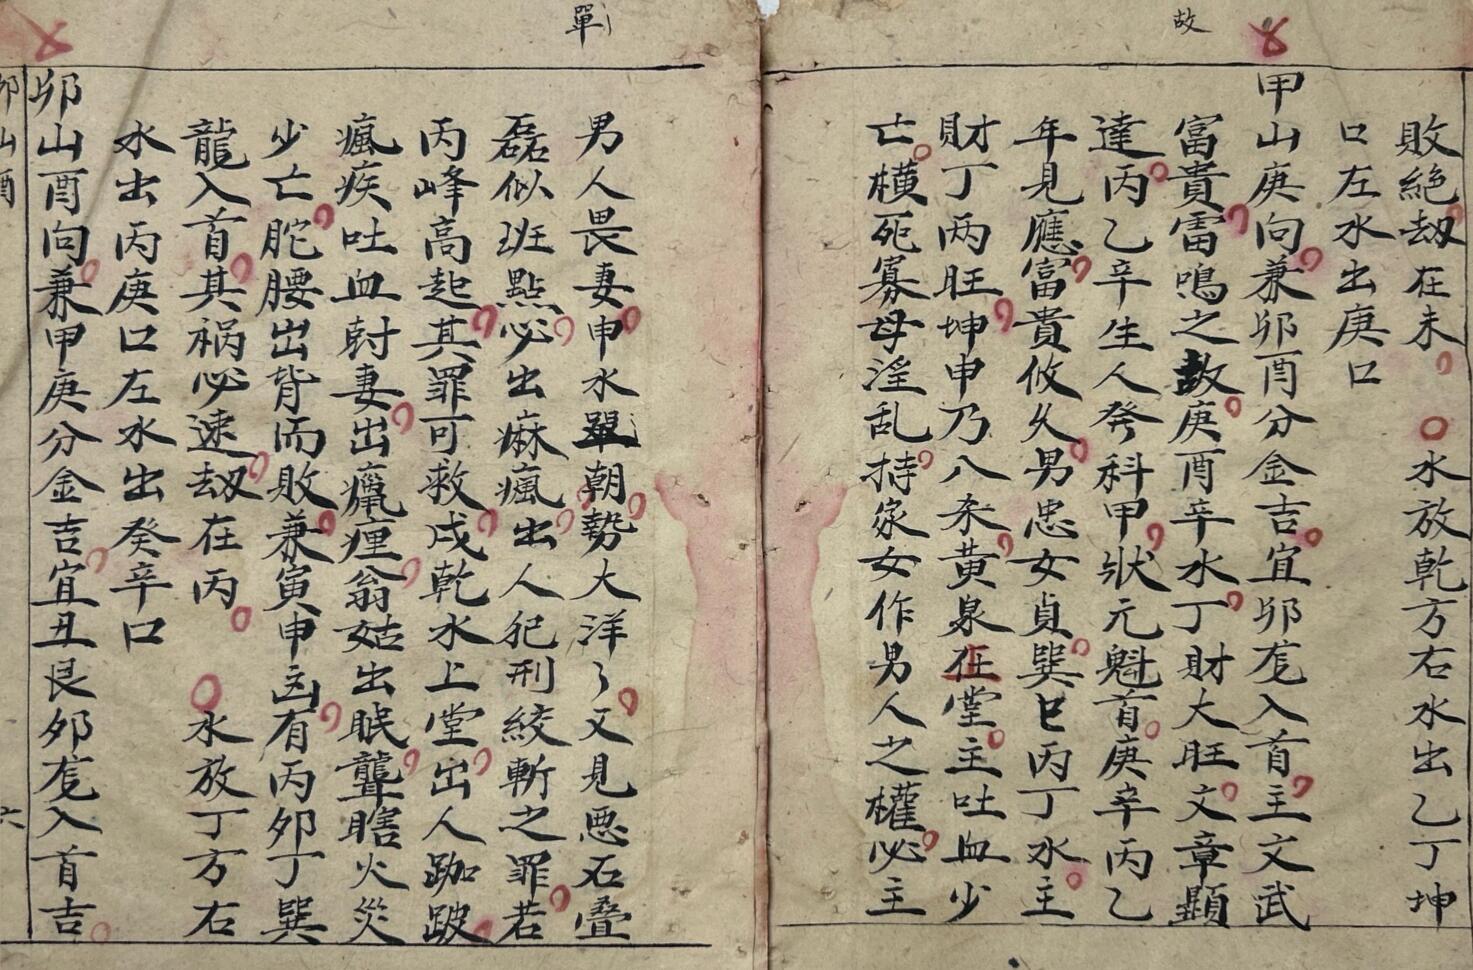 故
敗絶劫在未 水放乾方右水出乙丁坤
口左水出庚口
甲山庚向兼卯酉分金吉宜卯龙入首主文武
富貴雷鳴之故庚酉辛水丁財大旺文章顕
達丙乙辛生人癸科甲狀元魁首庚辛丙乙
年見應富貴攸久男忠女貞巽巳丙丁水主
財丁両旺坤申乃八杀黄泉在堂主吐血少
亡横死寡母淫乱持家女作男人之權必主
單
男人畏妻申水單朝勢大洋々又見悪石疊
磊似班點必出麻瘋出人犯刑絞斬之罪若
丙峰高起其罪可救戌乾水上堂出人跏跛
瘋疾吐血尅妻出癲痙翁姑出眠聾瞎火災
少亡駝腰出背而敗兼寅申凶有丙卯丁巽
龍入首其祸必速劫在丙 水放丁方右
水出丙庚口左水出癸辛口
卯山酉向兼甲庚分金吉宜丑艮卯龙入首吉
卯山酉 六